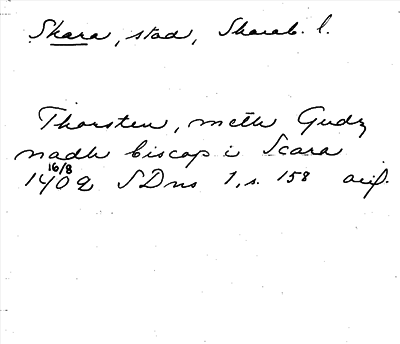 Skara, stad, Skarab. l.
Thorsten, meth Gudz
nadh biscop i Scara
16/8
1402 SDns 1, s. 158 avf.